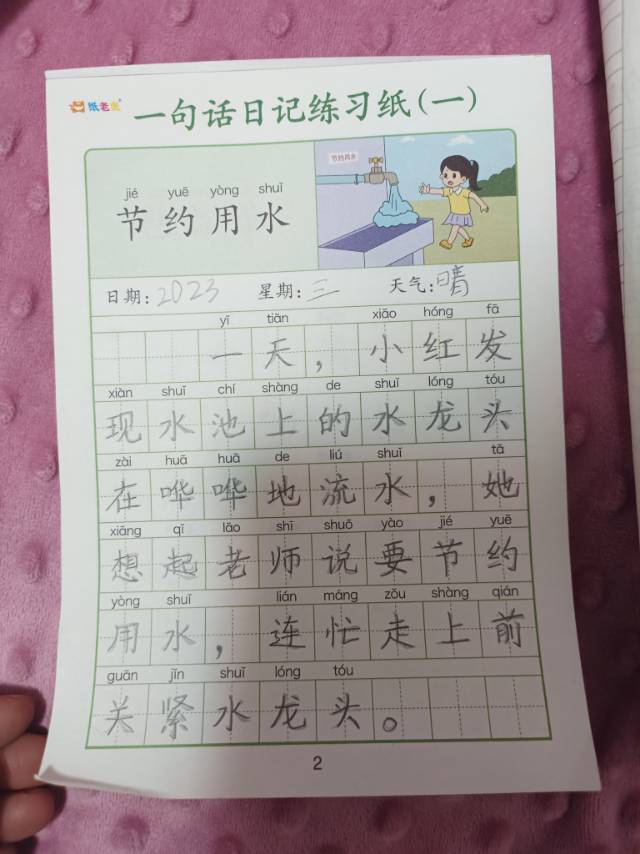 纸老虎
一句话日记练习纸(一)
jié yuē yòng shuǐ
节约用水
节约用水
日期:2023 星期:三 天气:晴
yī tiān xiǎo hóng fā
一天，小红发
xiàn shuǐ chí shàng de shuǐ lóng tóu
现水池上的水龙头
zài huā huā de liú shuǐ tā
在哗哗地流水，她
xiǎng qǐ lǎo shī shuō yào jié yuē
想起老师说要节约
yòng shuǐ lián máng zǒu shàng qián
用水，连忙走上前
guān jǐn shuǐ lóng tóu
关紧水龙头。
2